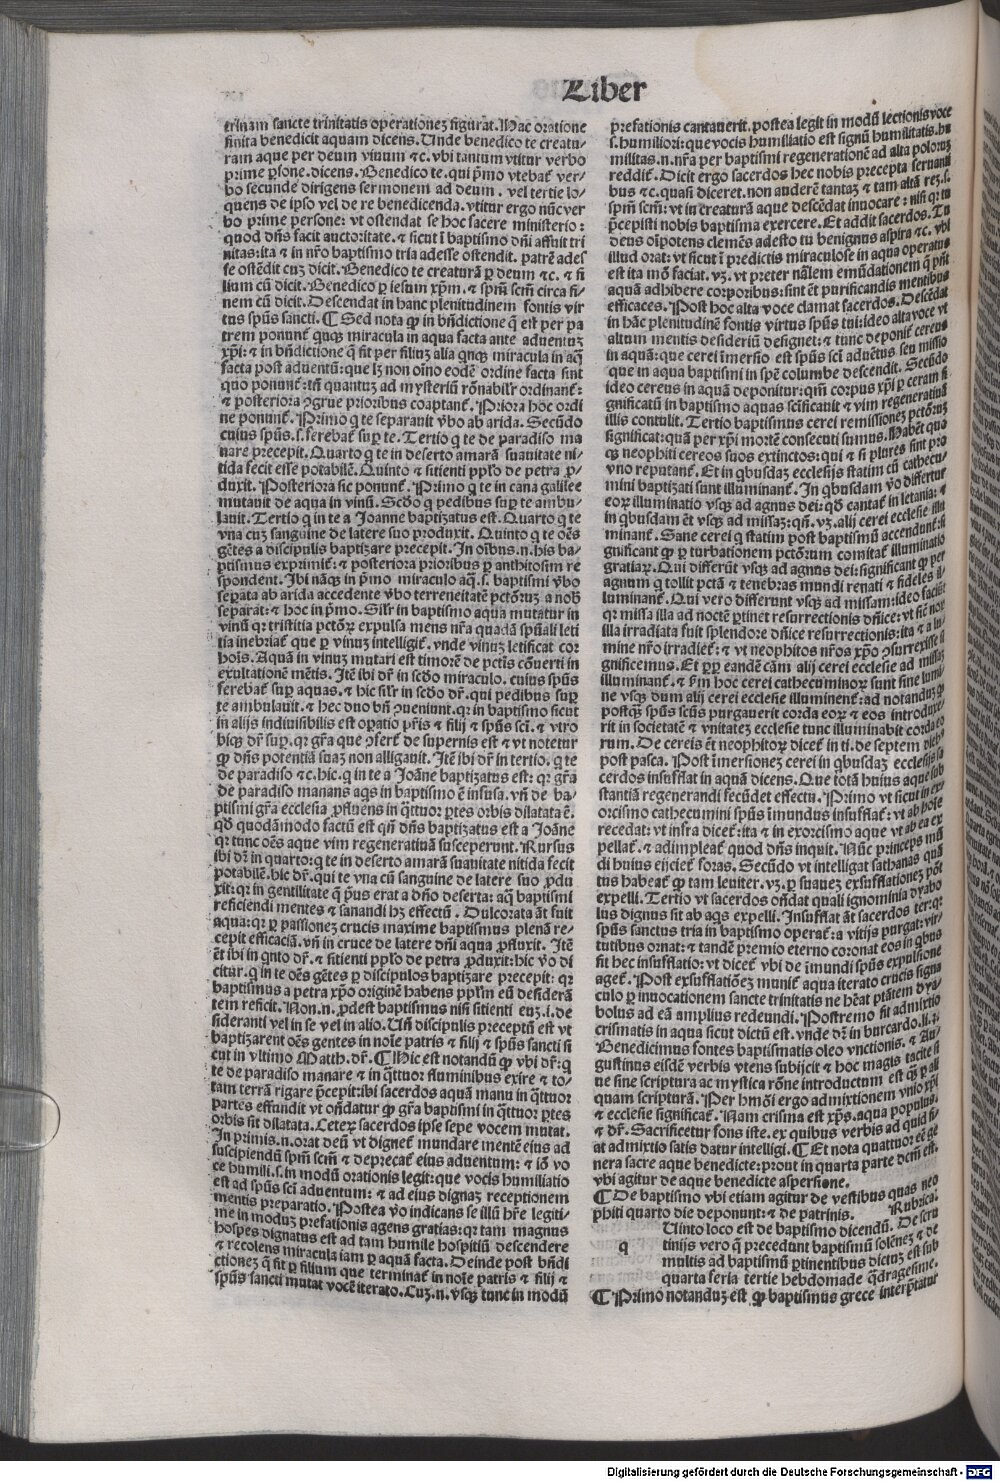 Liber
trinam sancte trinitatis operationeʒ figurat. Hac oratione
finita benedicit aquam dicens. Unde benedico te creatu-
ram aque per deum viuum ⁊c. vbi tantum vtitur verbo
prime ꝑsone. dicens. Benedico te. qui p̄mo vtebat᷑ ver-
bo secunde dirigens sermonem ad deum. vel tertie lo-
quens de ipso vel de re benedicenda. vtitur ergo nūc ver
bo prime persone: vt ostendat se hoc facere ministerio:
quod dn̄s facit auctoritate. ⁊ sicut ī baptismo dn̄i affuit tri
nitas: ita ⁊ in nr̄o baptismo tria adesse ostendit. patrē ades
se ostēdit cuʒ dicit. Benedico te creaturā ꝑ deum ⁊c. ⁊ fi
lium cū dicit. Benedico ꝑ iesum xp̄m. ⁊ spm̄ scm̄ circa fi-
nem cū dicit. Descendat in hanc plenitudinem fontis vir
tus spūs sancti. ¶ Sed nota ꝙ in bn̄dictione q̄ est per pa
trem ponunt᷑ qnqʒ miracula in aqua facta ante aduentuʒ
xp̄i: ⁊ in bn̄dictione q̄ fit per filiuʒ alia qnqʒ miracula in aq̄
facta post aduentū: que lʒ non oīno eodē ordine facta sint
quo ponunt᷑: tn̄ quantuʒ ad mysteriū rōnabilr̄ ordinant᷑:
⁊ posteriora ꝯgrue prioribus coaptant᷑. Priora hoc ordi
ne ponunt᷑. Primo q te separauit v̄bo ab arida. Secūdo
cuius spūs. s. ferebat᷑ suꝑ te. Tertio q te de paradiso ma
nare precepit. Quarto q te in deserto amarā suauitate ni-
tida fecit esse potabilē. Quinto ⁊ sitienti ppl̄o de petra ꝓ-
duxit. Posteriora sic ponunt᷑. Primo q te in cana galilee
mutauit de aqua in vinū. Scd̄o q pedibus suꝑ te ambu-
lauit. Tertio q in te a Joanne baptizatus est. Quarto q te
vna cuʒ sanguine de latere suo produxit. Quinto q te oēs
gētes a discipulis baptizare precepit. In oībus .n. his ba-
ptismus exprimit᷑: ⁊ posteriora prioribus ꝑ anthitosim re
spondent. Ibi nāqʒ in p̄mo miraculo aq̄. s. baptismi v̄bo
seꝑata ab arida accedente v̄bo terreneitatē pctōruʒ a nob̄
separat: ⁊ hoc in p̄mo. Silr̄ in baptismo aqua mutatur in
vinū qr tristitia pctōꝝ expulsa mens nr̄a quadā spūali leti
tia inebriat᷑ que ꝑ vinuʒ intelligit᷑. vnde vinuʒ letificat cor
hoīs. Aquā in vinuʒ mutari est timorē de pctīs cōuerti in
exultationē mētis. Itē ibi dr̄ in scd̄o miraculo. cuius spūs
ferebat᷑ suꝑ aquas. ⁊ hic silr̄ in scd̄o dr̄. qui pedibus suꝑ
te ambulauit. ⁊ hec duo bn̄ ꝯueniunt. qr in baptismo sicut
in alijs indiuisibilis est oꝑatio pr̄is ⁊ filij ⁊ spūs sci. ⁊ vtro
biqʒ dr̄ suꝑ. qr gr̄a que ꝯfert᷑ de supernis est ⁊ vt notetur
ꝙ dn̄s potentiā suaʒ non alligauit. Itē ibi dr̄ in tertio. q te
de paradiso ⁊c. hic. q in te a Joāne baptizatus est: qr gr̄a
de paradiso manans aqs in baptismo ē infusa. vn̄ de ba-
ptismi gr̄a ecclesia ꝓfluens in q̄ttuor ꝑtes orbis dilatata ē.
qd̄ quodāmodo factū est qn̄ dn̄s baptizatus est a Joāne
qr tunc oēs aque vim regeneratiuā susceperunt. Rursus
ibi dr̄ in quarto: q te in deserto amarā suauitate nitida fecit
potabilē. hic dr̄. qui te vna cū sanguine de latere suo ꝓdu
xit: qr in gentilitate q̄ p̄us erat a dn̄o deserta: aq̄ baptismi
reficiendi mentes ⁊ sanandi hʒ effectū. Dulcorata āt fuit
aqua: qr ꝑ passioneʒ crucis maxime baptismus plenā re-
cepit efficaciā. vn̄ in cruce de latere dn̄i aqua ꝓfluxit. Itē
ēt ibi in qnto dr̄. ⁊ sitienti ppl̄o de petra ꝓduxit: hic v̄o di
citur. q in te oēs gētes ꝑ discipulos baptizare precepit: qr
baptismus a petra xp̄o originē habens ppl̄m eū desiderā
tem reficit. Non .n. ꝓdest baptismus nisi sitienti euʒ. i. de
sideranti vel in se vel in alio. Un̄ discipulis preceptū est vt
baptizarent oēs gentes in noīe patris ⁊ filij ⁊ spūs sancti si
cut in vltimo Matth. dr̄. ¶ Hic est notandū ꝙ vbi dr̄: q
te de paradiso manare ⁊ in q̄ttuor fluminibus exire ⁊ to-
tam terrā rigare p̄cepit: ibi sacerdos aquā manu in q̄ttuor
partes effundit vt on̄datur ꝙ gr̄a baptismi in q̄ttuor ꝑtes
orbis sit dilatata. Ceteꝝ sacerdos ipse sepe vocem mutat.
In primis .n. orat deū vt dignet᷑ mundare mentē eius ad
suscipiendū spm̄ scm̄ ⁊ deprecat᷑ eius aduentum: ⁊ iō vo
ce humili. s. in modū orationis legit: que vocis humiliatio
est ad spūs sci aduentum: ⁊ ad eius dignaʒ receptionem
mentis preparatio. Postea v̄o indicans se illū hr̄e legiti-
me in moduʒ prefationis agens gratias: qr tam magnus
hospes dignatus est ad tam humile hospitiū descendere
⁊ recolens miracula iam ꝑ aquā facta. Deinde post bn̄di
ctioneʒ q̄ fit ꝑ filium que terminat᷑ in noīe patris ⁊ filij ⁊
spūs sancti mutat vocē iterato. Cuʒ .n. vsqʒ tunc in modū
prefationis cantauerit. postea legit in modū lectionis voce
s. humiliori: que vocis humiliatio est signū humilitatis. hu
militas .n. nr̄a per baptismi regenerationē ad alta poloruʒ
reddit᷑. Dicit ergo sacerdos hec nobis precepta seruanti
bus ⁊c. quasi diceret. non auderē tantaʒ ⁊ tam altā reʒ. s.
spm̄ scm̄: vt in creaturā aque descēdat inuocare: nisi qr tu
p̄cepisti nobis baptisma exercere. Et addit sacerdos. Tu
deus oīpotens clemēs adesto tu benignus aspira ⁊c. vbi
illud orat: vt sicut ī predictis miraculose in aqua operatus
est ita mō faciat. vʒ. vt preter nāl̄em emūdationem q̄ pn̄t
aquā adhibere corporibus: sint ēt purificandis mentibus
efficaces. Post hoc alta voce clamat sacerdos. Descēdat
in hāc plenitudinē fontis virtus spūs tui: ideo alta voce vt
altum mentis desideriū designet: ⁊ tunc deponit᷑ cereus
in aquā: que cerei īmersio est spūs sci aduētus seu missio
que in aqua baptismi in spē columbe descendit. Secūdo
ideo cereus in aquā deponitur: qm̄ corpus xp̄i ꝑ ceram si
gnificatū in baptismo aquas sctificauit ⁊ vim regeneratiuā
illis contulit. Tertio baptismus cerei remissioneʒ pctōruʒ
significat: quā per xp̄i mortē consecuti sumus. Habēt quo
qʒ neophiti cereos suos extinctos: qui ⁊ si plures sint pro
vno reputant᷑. Et in qbusdaʒ ecclesijs statim cū cathecu-
mini baptizati sunt illuminant᷑. In qbusdam v̄o differtur
eoꝝ illuminatio vsqʒ ad agnus dei: qd̄ cantat᷑ in letania: ⁊
in qbusdam ēt vsqʒ ad missaʒ: qn̄. vʒ. alij cerei ecclesie illu
minant᷑. Sane cerei q statim post baptismū accendunt᷑: si
gnificant ꝙ ꝑ turbationem pctōrum comitat᷑ illuminatio
gratiaꝝ. Qui differūt vsqʒ ad agnus dei: significant ꝙ per
agnum q tollit pctā ⁊ tenebras mundi renati ⁊ fideles il-
luminant᷑. Qui vero differunt vsqʒ ad missam: ideo faciūt
qr missa illa ad noctē ꝑtinet resurrectionis dn̄ice: vt sic᷑ nox
illa irradiata fuit splendore dn̄ice resurrectionis: ita ⁊ a lu-
mine nr̄o irradiet᷑: ⁊ vt neophitos nr̄os xp̄o ꝯsurrexisse si
gnificemus. Et ꝓp eandē cām alij cerei ecclesie ad missaʒ
illuminant᷑. ⁊ ẜm hoc cerei cathecuminoꝝ sunt sine lumi-
ne vsqʒ dum alij cerei ecclesie illuminent᷑: ad notanduʒ ꝙ
postqʒ spūs scūs purgauerit corda eoꝝ ⁊ eos introduxe
rit in societatē ⁊ vnitateʒ ecclesie tunc illuminabit corda eo
rum. De cereis ēt neophitoꝝ dicet᷑ in ti. de septem dieb᷒
post pasca. Post īmersioneʒ cerei in qbusdaʒ ecclesijs sa
cerdos insufflat in aquā dicens. Que totā huius aque sub
stantiā regenerandi fecūdet effectu. Primo vt sicut in ex-
orcismo cathecumini spūs īmundus insufflat᷑: vt ab hoīe
recedat: vt infra dicet᷑: ita ⁊ in exorcismo aque vt ab ea ex
pellat᷑. ⁊ adimpleat᷑ quod dn̄s inquit. Nūc princeps mū
di huius eijciet᷑ foras. Secūdo vt intelligat sathanas quā
tus habeat᷑ ꝙ tam leuiter. vʒ. ꝑ suaueʒ exsufflationeʒ pōt
expelli. Tertio vt sacerdos on̄dat quali ignominia dyabo
lus dignus sit ab aqs expelli. Insufflat āt sacerdos ter: qr
spūs sanctus tria in baptismo operat᷑: a vitijs purgat: vir-
tutibus ornat: ⁊ tandē premio eterno coronat eos in qbus
fit hec insufflatio: vt dicet᷑ vbi de īmundi spūs expulsione
aget᷑. Post exsufflatiōeʒ munit᷑ aqua iterato crucis signa
culo ꝑ inuocationem sancte trinitatis ne hēat ptātem dya-
bolus ad eā amplius redeundi. Postremo fit admixtio
crismatis in aqua sicut dictū est. vnde dr̄ in burcardo. li. 4.
Benedicimus fontes baptismatis oleo vnctionis. ⁊ Au-
gustinus eisdē verbis vtens subijcit ⁊ hoc magis tacite si
ue sine scriptura ac mystica rōne introductum est qʒ ꝑ ali
quam scripturā. Per hmōi ergo admixtionem vnio xp̄i
⁊ ecclesie significat᷑. Nam crisma est xp̄s. aqua populus.
⁊ dr̄. Sacrificetur fons iste. ex quibus verbis ad quid fi-
at admixtio satis datur intelligi. ¶ Et nota quattuor eē ge
nera sacre aque benedicte: prout in quarta parte dcm̄ est.
vbi agitur de aque benedicte aspersione.
¶ De baptismo vbi etiam agitur de vestibus quas neo
phiti quarto die deponunt: ⁊ de patrinis. Rubrica.
q Uinto loco est de baptismo dicendū. De scru
tinijs vero q̄ precedunt baptismū solēneʒ ⁊ de
multis ad baptismū ꝑtinentibus dictuʒ est sub
quarta feria tertie hebdomade q̄dragesime.
¶ Primo notanduʒ est ꝙ baptismus grece interp̄tatur
Digitalisierung gefördert durch die Deutsche Forschungsgemeinschaft - DFG